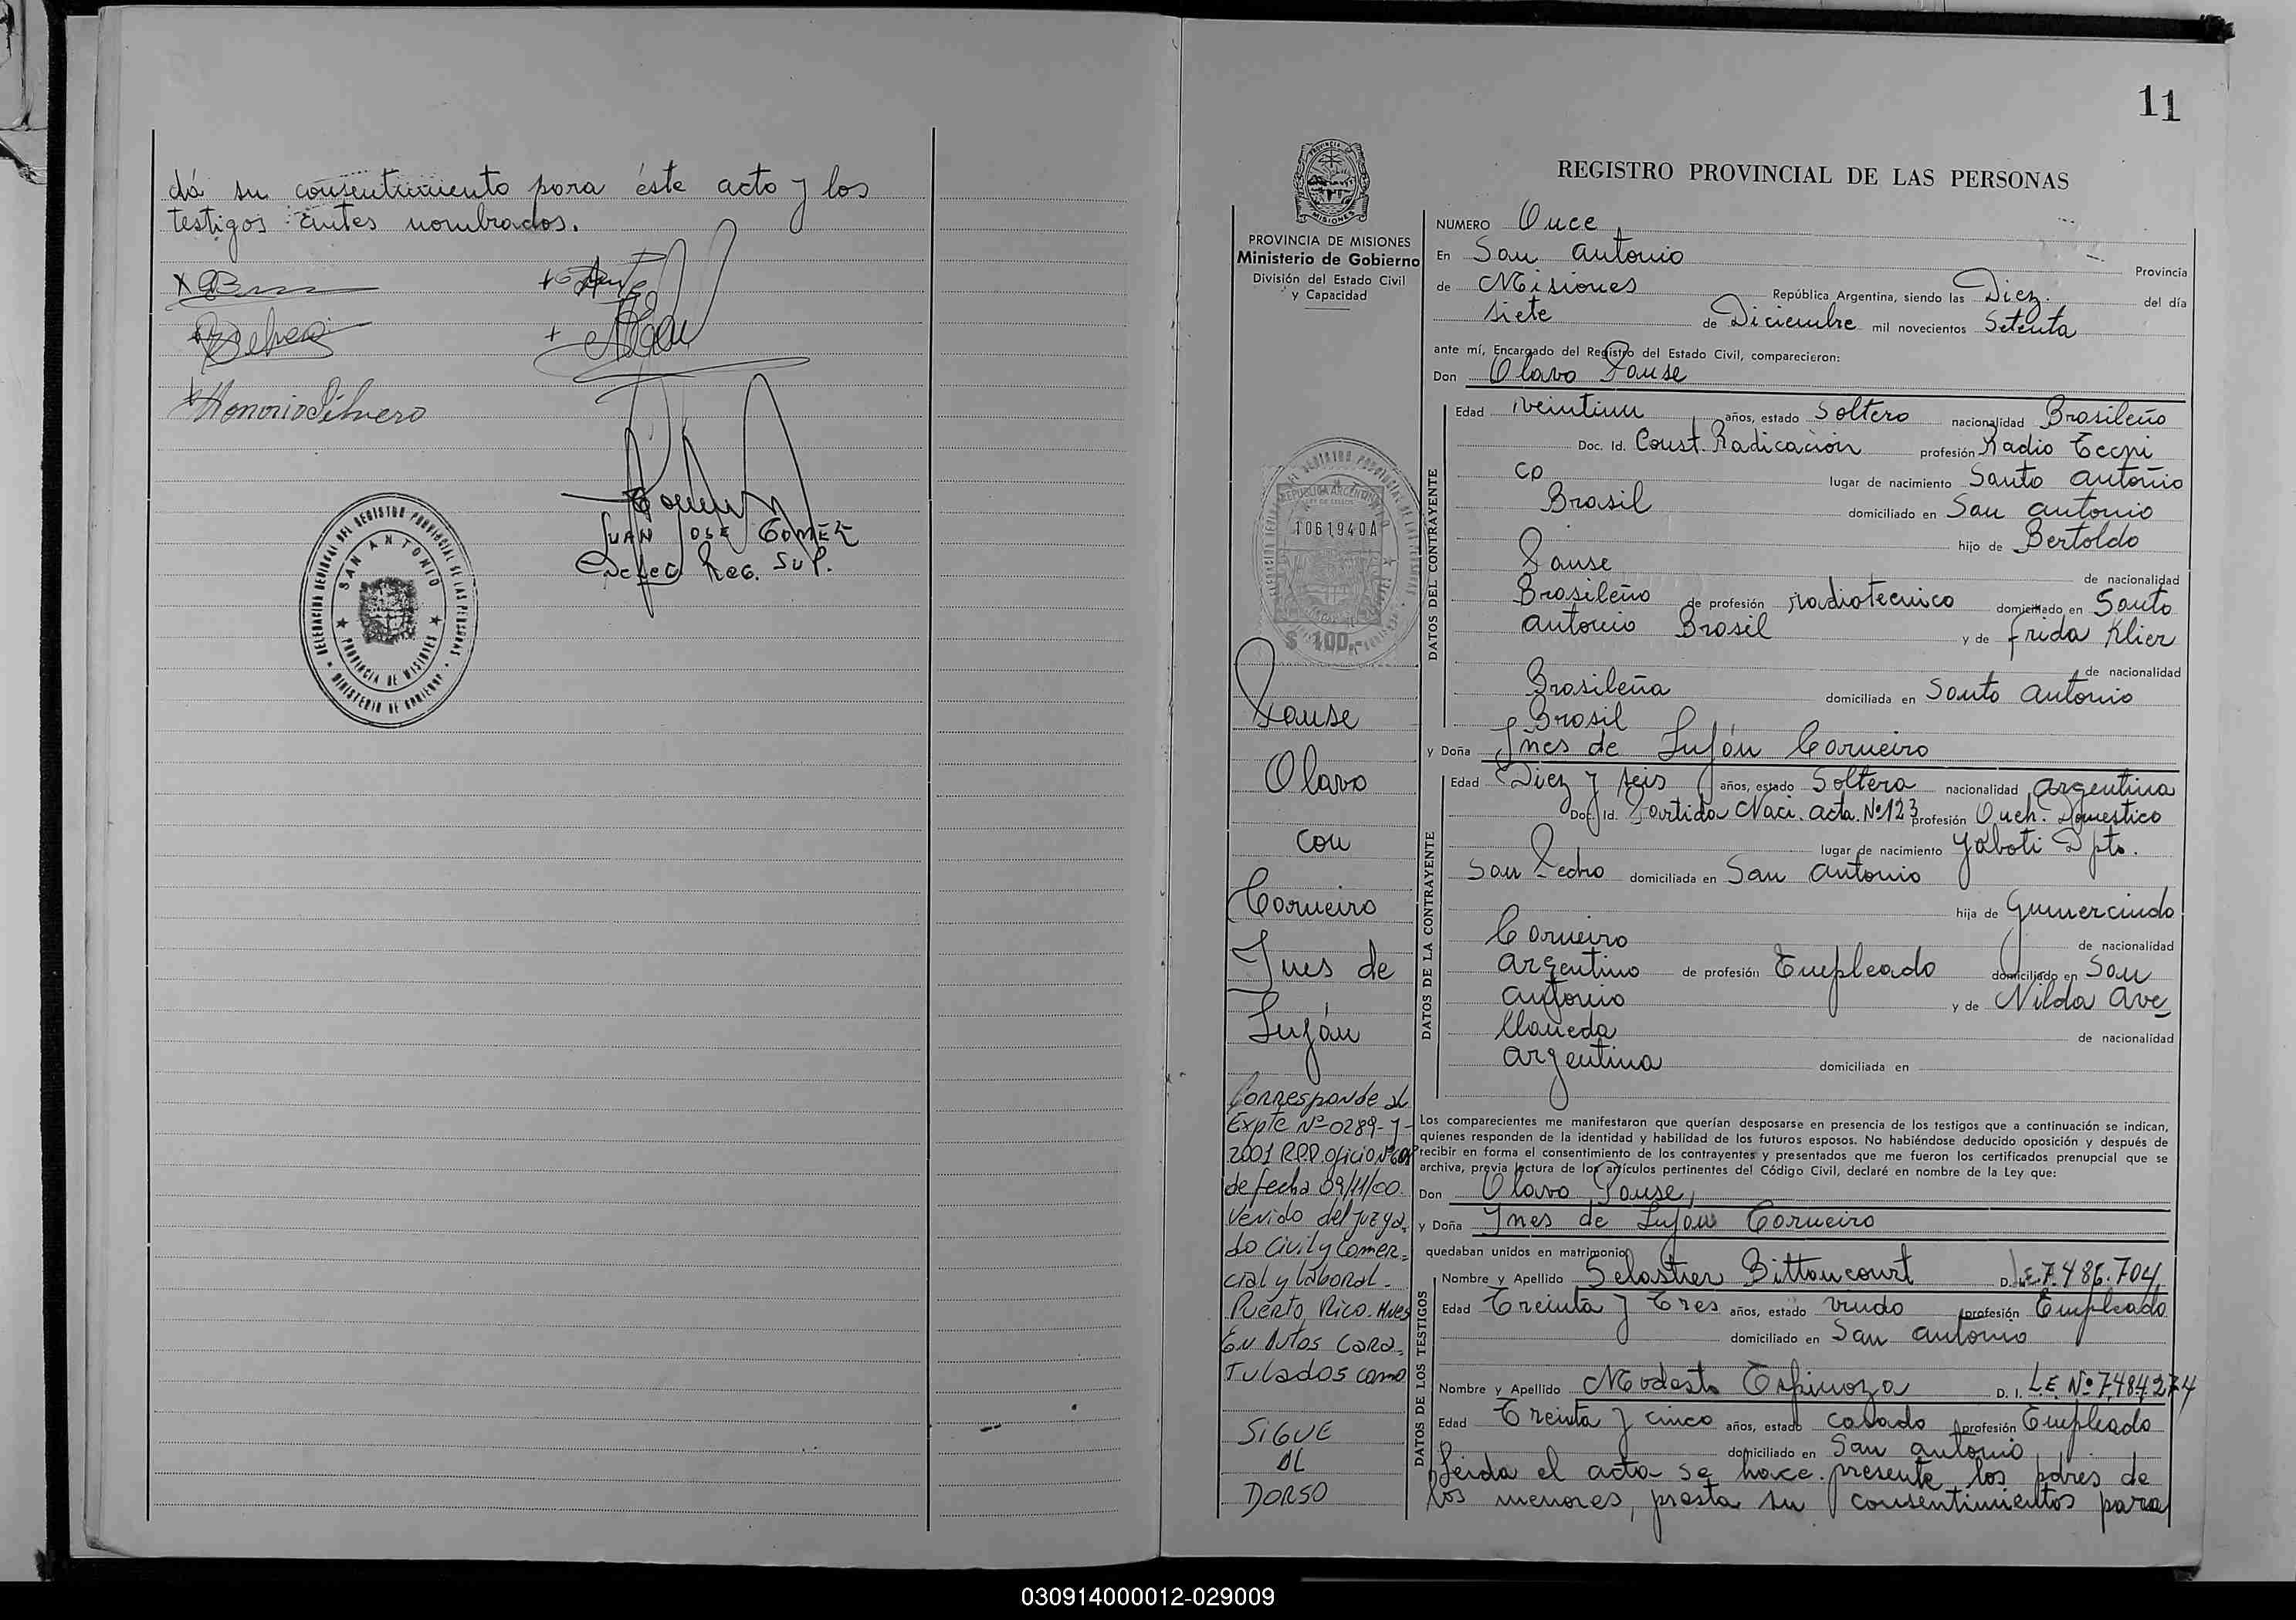 dá su consentimiento para éste acto y los
testigos antes nombrados.
Honorio Silvero
JUAN JOSE GOMEZ
Deleg. Reg. Sup.
DELEGACION REGIONAL DEL REGISTRO PROVINCIAL DE LAS PERSONAS
SAN ANTONIO
PROVINCIA DE MISIONES
MINISTERIO DE GOBIERNO
11
REGISTRO PROVINCIAL DE LAS PERSONAS
PROVINCIA DE MISIONES
Ministerio de Gobierno
División del Estado Civil
y Capacidad
REPUBLICA ARGENTINA
1061940A
$ 100
Pause
Olavo
con
Carneiro
Ines de
Luján
Corresponde al
Expte Nº 0289-J-
2001 R.P.P. oficio Nº
de fecha 09/11/00.
Venido del Juzga
do Civil y Comer=
cial y laboral-
Puerto Rico. Mnes
En Autos Cara=
Tulados como
SIGUE
AL
DORSO
NUMERO Once
En San Antonio Provincia
de Misiones República Argentina, siendo las Diez. del día
siete de Diciembre mil novecientos Setenta
ante mí, Encargado del Registro del Estado Civil, comparecieron:
Don Olavo Pause
DATOS DEL CONTRAYENTE
Edad veintiun años, estado Soltero nacionalidad Brasileño
Doc. Id. Const. Radicación profesión Radio Tecni
co lugar de nacimiento Santo Antonio
Brasil domiciliado en San Antonio
hijo de Bertoldo
Pause de nacionalidad
Brasileño de profesión radiotecnico domiciliado en Santo
Antonio Brasil y de frida Klier
de nacionalidad
Brasileña domiciliada en Santo Antonio
Brasil
y Doña Ynes de Luján Carneiro
DATOS DE LA CONTRAYENTE
Edad Diez y seis años, estado Soltera nacionalidad Argentina
Doc. Id. Partida Naci. Acta. Nº123 profesión Queh. Domestico
lugar de nacimiento Yaboti Dpto.
San Pedro domiciliada en San Antonio
hija de Gumercindo
Carneiro de nacionalidad
Argentino de profesión Empleado domiciliado en San
Antonio y de Nilda Ave
llaneda de nacionalidad
Argentina domiciliada en
Los comparecientes me manifestaron que querían desposarse en presencia de los testigos que a continuación se indican,
quienes responden de la identidad y habilidad de los futuros esposos. No habiéndose deducido oposición y después de
recibir en forma el consentimiento de los contrayentes y presentados que me fueron los certificados prenupcial que se
archiva, previa lectura de los artículos pertinentes del Código Civil, declaré en nombre de la Ley que:
Don Olavo Pause,
y Doña Ynes de Luján Carneiro
quedaban unidos en matrimonio
DATOS DE LOS TESTIGOS
Nombre y Apellido Bittancourt D. L.E. 7.486.704
Edad Treinta y Tres años, estado viudo profesión Empleado
domiciliado en San Antonio
Nombre y Apellido Modesto Espinoza D. I. L.E. Nº 7.484.274
Edad Treinta y cinco años, estado casado profesión Empleado
domiciliado en San Antonio
Leida el acta se hace presente los pdres de
los menores, presta su consentimientos para
030914000012-029009